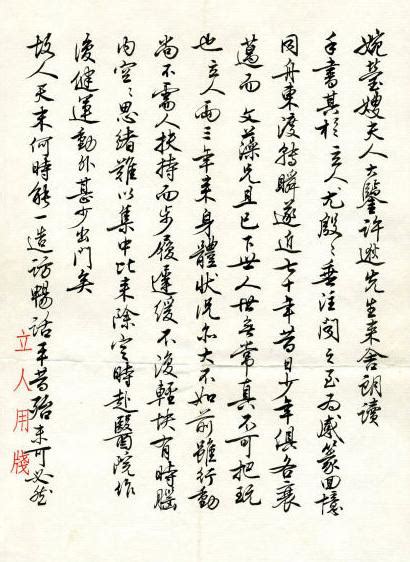 婉瑩嫂夫人大鑒許逖先生來舍朗讀
手書其於立人尤殷々垂注聞之至為感篆回憶
同舟東渡轉瞬遂近七十年昔日少年俱各衰
邁而文藻兄且已下世人世無常真不可把玩
也立人兩三年來身體狀況亦大不如前雖行動
尚不需人扶持而步履遲緩不復輕快有時腦
內空々思緒難以集中比來除定時赴醫院作
復健運動外甚少出門矣
故人天末何時能一造訪暢話平昔殆未可必然
立人用牋